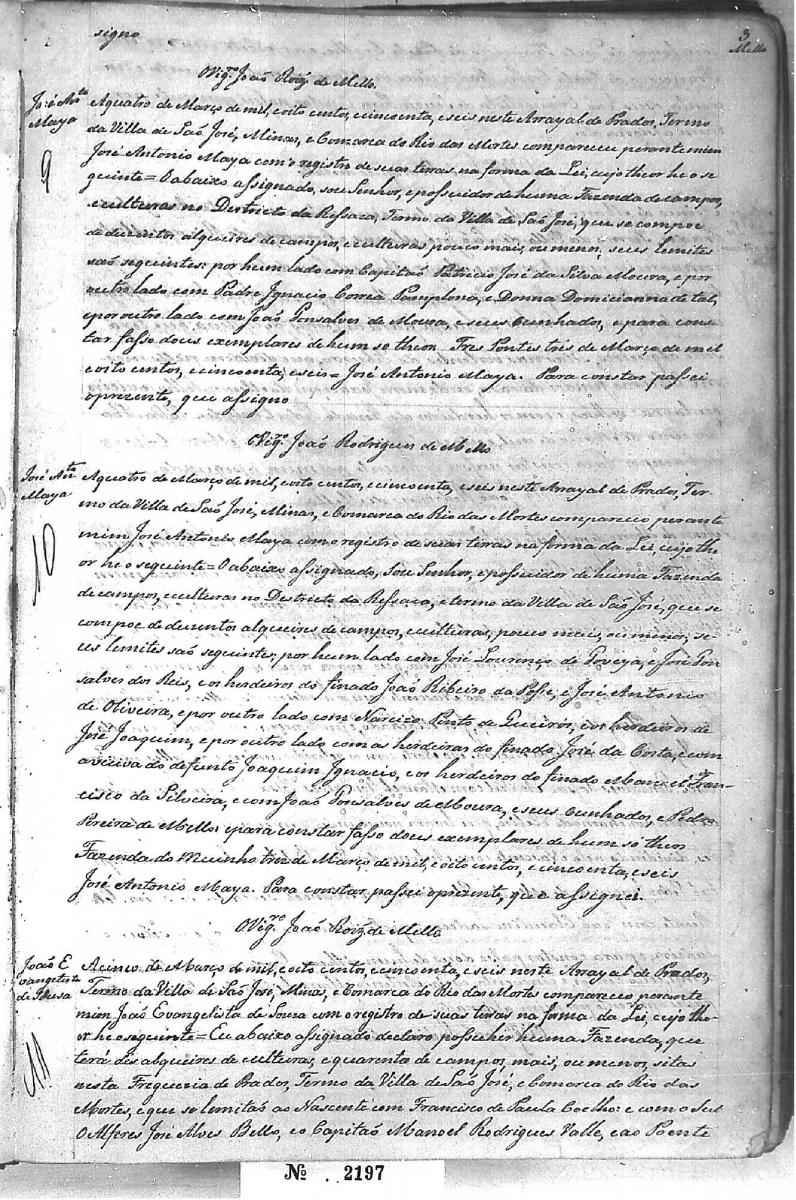 signo
3
Mello
O Vigr.º João Roiz de Mello
José Ant.º
Maya
9
Aquatro de Março de mil, oito centos, ecincoenta, eseis neste Arrayal de Prados, Termo
da Villa de São José, Minas, e Comarca do Rio das Mortes compareceu perante mim
José Antonio Maya com o registro de suas terras na forma da Lei, cujo theor he o se
guinte = O abaixo assignado, sou Senhor, e possuidor de huma Fazenda de campos,
e culturas no Destricto da Ressaca, Termo da Villa de São José, que se compoe
de duzentos alqueires de campos, e culturas pouco mais, ou menos, seus lemites
saõ seguintes: por hum lado com Capitaõ Patricio José da Silva Moura, e por
outro lado com Padre Ignacio Correa Pamplona, e Donna Domicianna de tal,
e por outro lado com João Gonsalves de Moura, e seus Cunhados, e para cons
tar fasso dous exemplares de hum só theor. Tres Pontes tres de Março de mil
e oito centos, e cincoenta, e seis = José Antonio Maya. Para constar passei
o prezente, que assigno
O Vigr.º João Rodrigues de Mello
José Ant.º
Maya
10
Aquatro de Março de mil, oito centos, ecincoenta, eseis neste Arrayal de Prados, Ter-
mo da Villa de São José, Minas, e Comarca do Rio das Mortes compareceo perante
mim José Antonio Maya com o registro de suas terras na forma da Lei, cujo the
or he o seguinte = O abaixo assignado, Sou Senhor, e possuidor de huma Fazenda
de campos, e culturas no Destricto da Ressaca, e termo da Villa de São José, que se
compoe de duzentos alqueires de campos, e culturas, pouco mais, ou menos, se-
us lemites saõ seguintes: por hum lado com José Lourenço de , e José Gon
salves dos Reis, e os herdeiros do finado João Ribeiro da , e José Antonio
de Oliveira, e por outro lado com Narcizo Pinto de Queiros, e os herdeiros de
José Joaquim, e por outro lado com as herdeiras do finado José da Costa, e com
a viuva do defunto Joaquim Ignacio, e os herdeiros do finado Manoel Fran-
cisco da Silveira, e com João Gonsalves de Moura, e seus Cunhados, e Pedro
Pereira de Mello: e para constar fasso dous exemplares de hum só theor
Fazenda do Muinho tres de Março de mil, e oito centos, e cincoenta, e seis
José Antonio Maya. Para constar passei o prezente, que assignei.
O Vigr.º João Roiz de Mello
João E
vangelista
de
11
A cinco de Março de mil, oito centos, e cincoenta, e seis neste Arrayal de Prados,
Termo da Villa de São José, Minas, e Comarca do Rio das Mortes compareceo perante
mim João Evangelista de Souza com o registro de suas terras na forma da Lei, cujo the-
or he o seguinte = Eu abaixo assignado declaro possuher huma Fazenda, que
terá dés alqueires de culturas, e quarenta de campos, mais, ou menos, sitas
nesta Freguezia de Prados, Termo da Villa de São José, e Comarca do Rio das
Mortes, e que se lemitaõ ao Nascente com Francisco de Paula Coelho: e com o Sul
O Alferes José Alves Bello, e o Capitaõ Manoel Rodrigues Valle, e ao Poente
Nº 2197